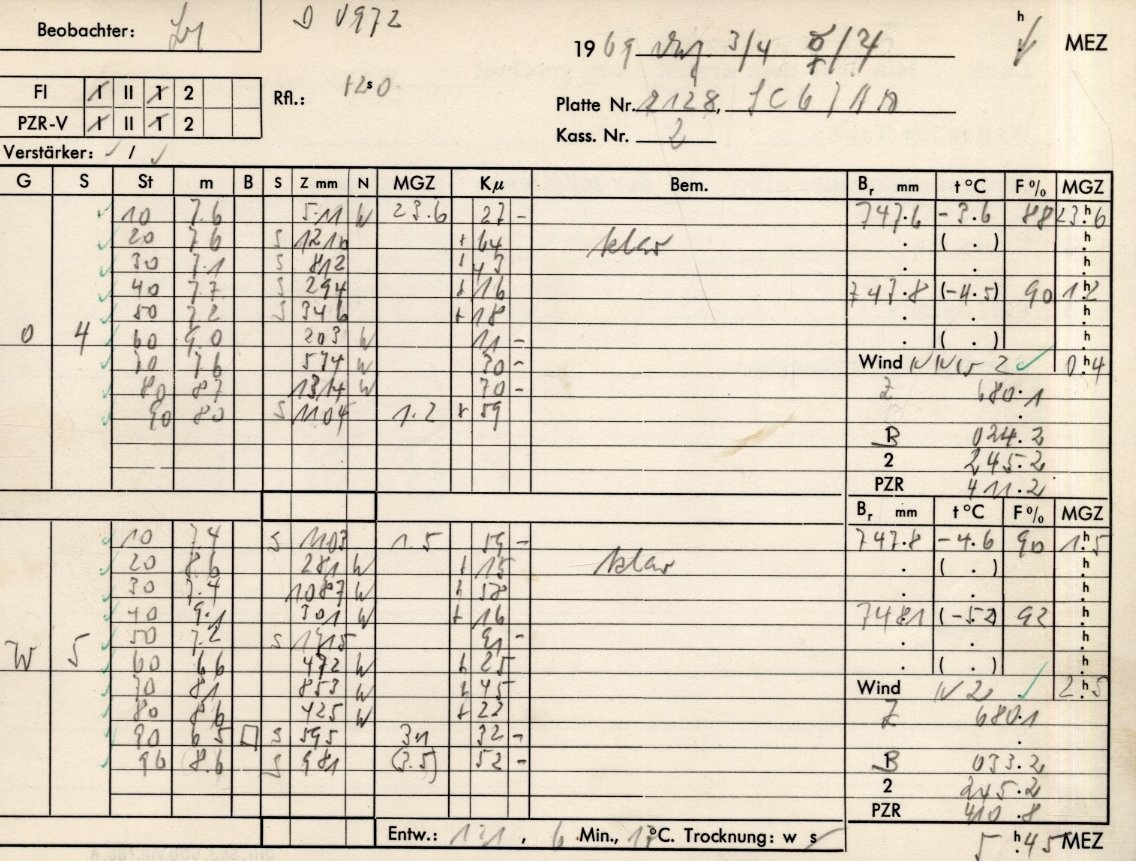 D V972
Beobachter:
19 69 3/4 h MEZ
FI I II 1 2 Rfl.: +2s0
Platte Nr. 2128,
PZR-V I II 1 2
Kass. Nr. 2
Verstärker: /
G S St m B S Z mm N MGZ Kμ Bem. Br mm t°C F% MGZ
10 7.6 511 W 23.6 27 - 747.6 -3.6 88 23h6
20 7.6 S 1210 + 64 klar . ( . ) h
30 7.1 S 812 + 43 . . h
40 7.7 S 294 + 16 747.8 (-4.5) 90 1h2
50 7.2 S 346 + 18 . . h
O 4 60 9.0 203 W 11 - . ( . ) h
70 7.6 574 W 30 - Wind NNW 2 0h4
80 87 1314 W 70 - Z 680.1
90 80 S 1104 1.2 + 59
B 024.2
2 245.2
PZR 411.2
Br mm t°C F% MGZ
10 7.4 S 1103 1.5 59 - 747.8 -4.6 90 1h5
20 8.6 281 W + 15 klar . ( . ) h
30 7.4 1087 W + 58 . . h
40 9.1 301 W + 16 748.1 (-5.2) 92 h
50 7.2 S 1715 91 - . . h
W 5 60 66 472 W + 25 . ( . ) h
70 81 853 W + 45 Wind N 2 2h5
80 8.6 425 W + 22 Z 680.1
90 6.5 S 595 3.1 32 -
96 (8.6 S 981 (3.5) 52 - B 033.2
2 245.2
PZR 410.8
Entw.: 1:31, 6 Min., °C. Trocknung: w s
5 h 45 MEZ